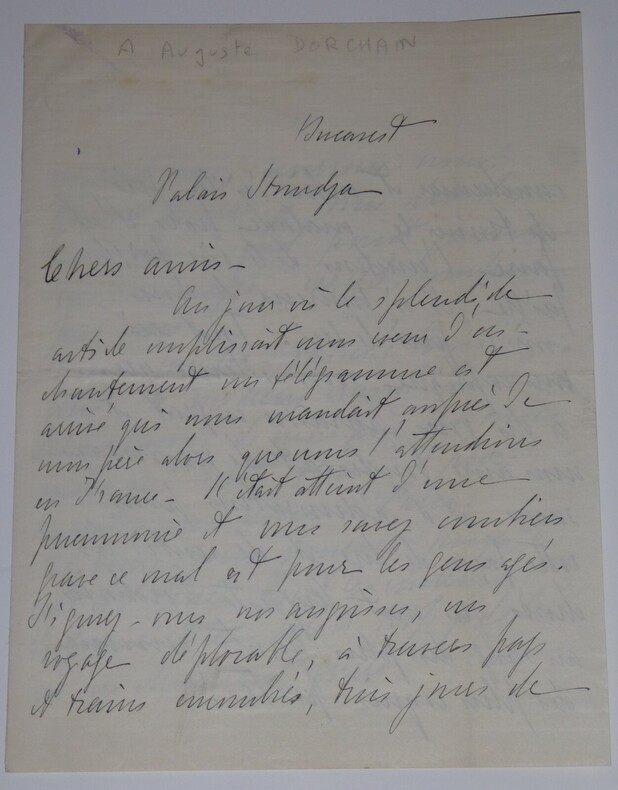 A Auguste DORCHAIN
Bucarest
Palais Stourdza
Chers amis –
Au jour où le splendide
article emplissait mon coeur d'en-
chantement un télégramme est
arrivé qui nous mandait auprès de
mon père alors que nous l'attendions
en France – Il était atteint d'une
pneumonie et vous savez combien
grave ce mal est pour les gens agés.
Figurez-vous nos angoisses, un
voyage déplorable, à travers pays
et trains encombrés, trois jours de